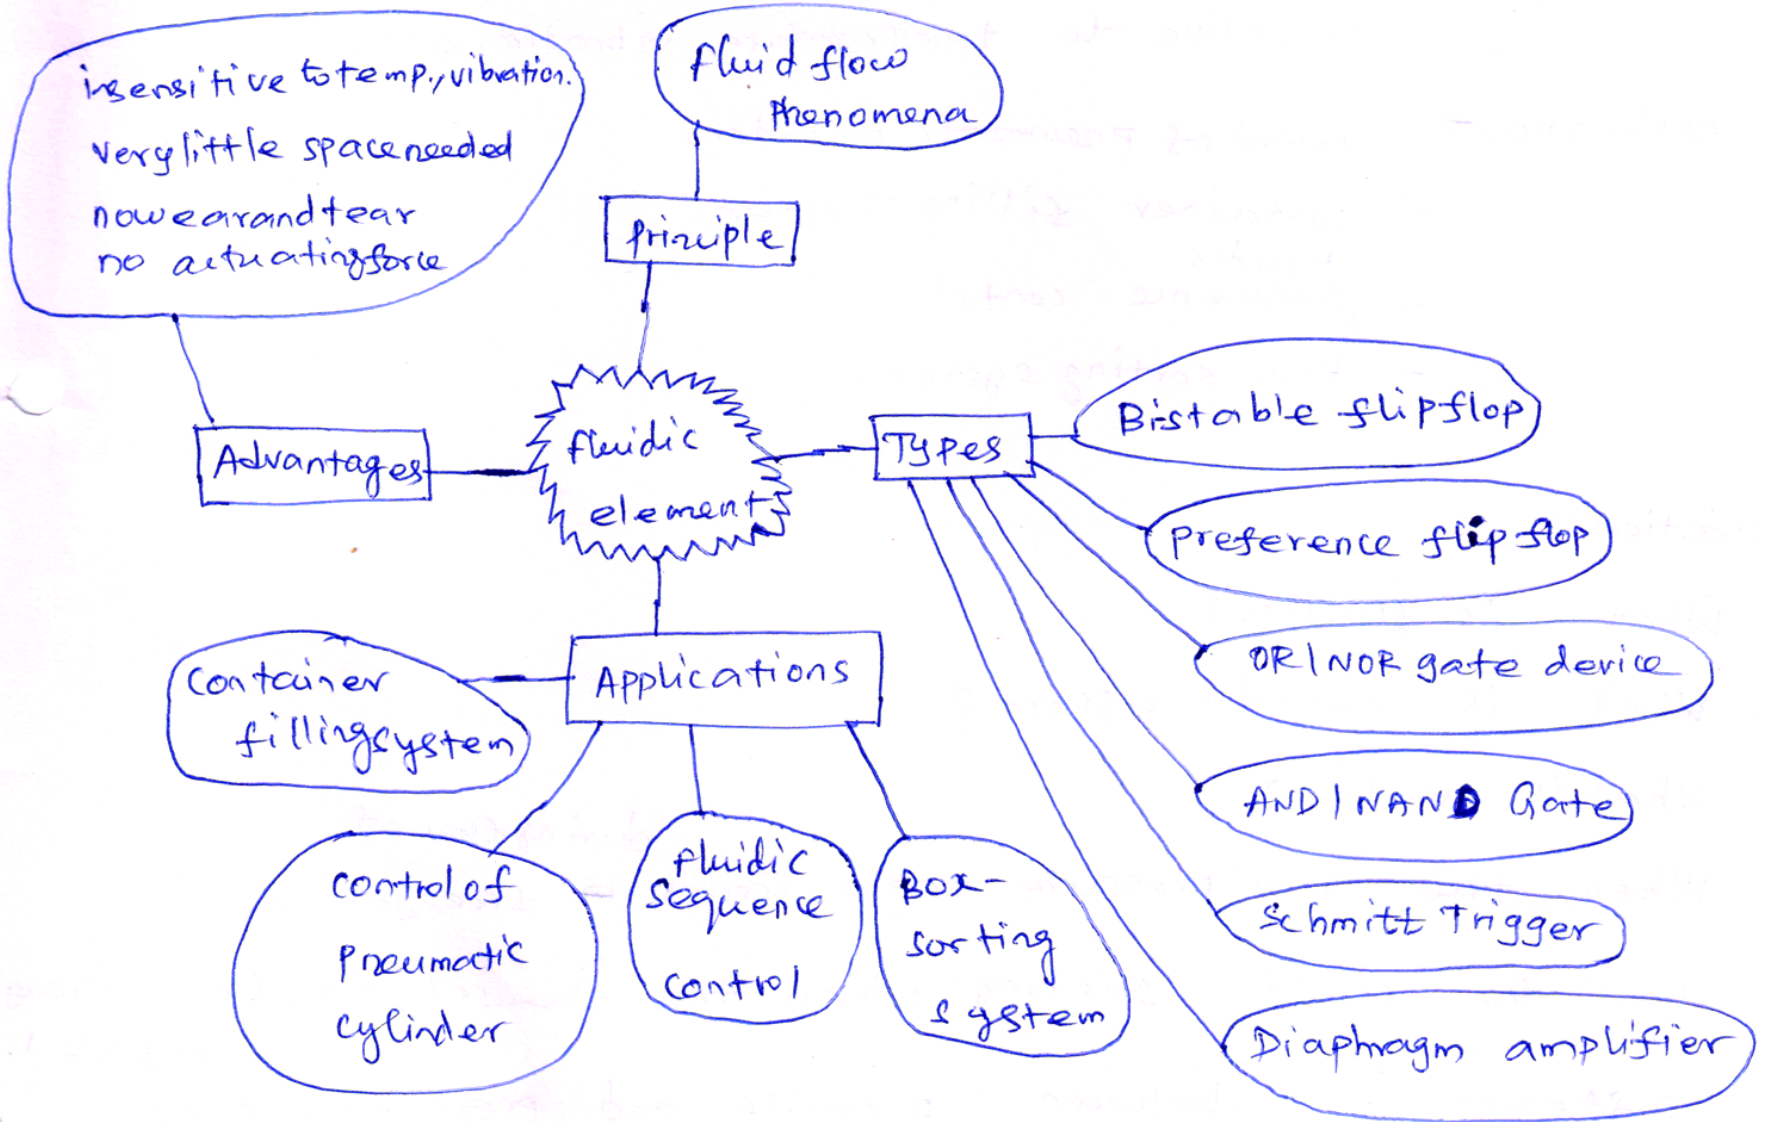 insensitive to temp., vibration.
very little space needed
no wear and tear
no actuating force
fluid flow
Phenomena
Principle
Advantages
fluidic
element
Types
Bistable flipflop
Preference flip flop
OR/NOR gate device
AND/NAND Gate
Schmitt Trigger
Diaphragm amplifier
Applications
Container
filling system
control of
Pneumatic
cylinder
fluidic
sequence
control
Box-
sorting
system